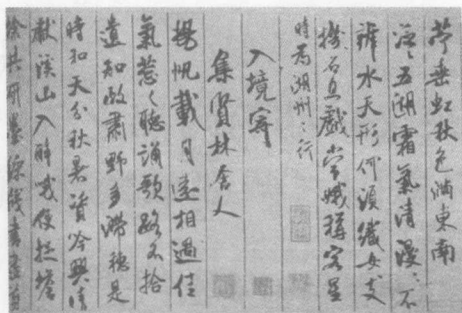 苧垂虹秋色滿東南
泛〻五湖霜氣清漫〻不
辨水天形何須織女支
機石且戲常娥稱客星
時為湖州之行
入境寄
集賢林舍人
揚帆載月遠相過佳
氣葱〻聽誦歌路不拾
遺知政肅野多滯穗是
時和天分秋暑資吟興晴
獻溪山入醉哦便捉蟾
蜍共研墨綵牋書盡剪